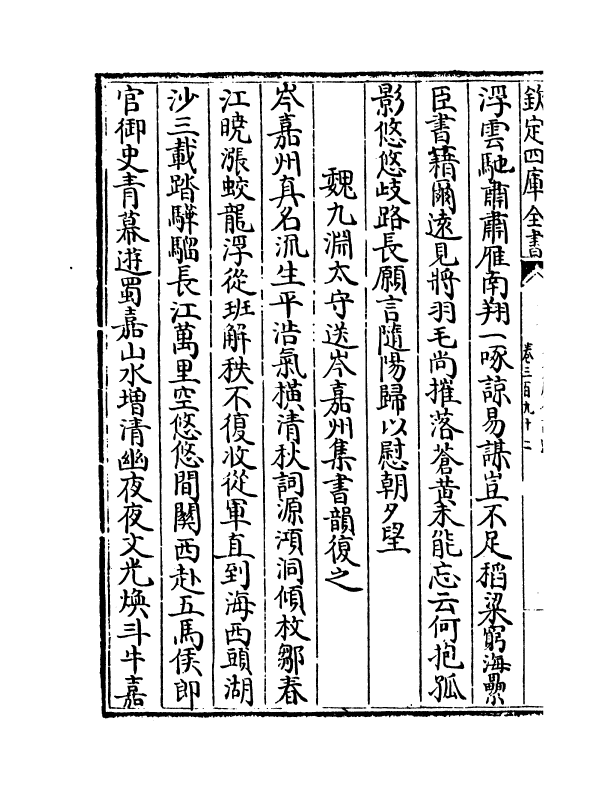 欽定四庫全書
卷三百九十二
浮雲馳肅肅雁南翔一啄諒易謀豈不足稻粱窮海纍
臣書藉爾遠見將羽毛尚摧落蒼黃未能忘云何抱孤
影悠悠歧路長願言隨陽歸以慰朝夕望
魏九淵太守送岑嘉州集書韻復之
岑嘉州真名流生平浩氣橫清秋詞源澒洞傾枚鄒春
江曉漲蛟龍浮從班解秩不復收從軍直到海西頭湖
沙三載踏驊騮長江萬里空悠悠間關西赴五馬侯郎
官御史青幕遊蜀嘉山水增清幽夜夜文光煥斗牛嘉